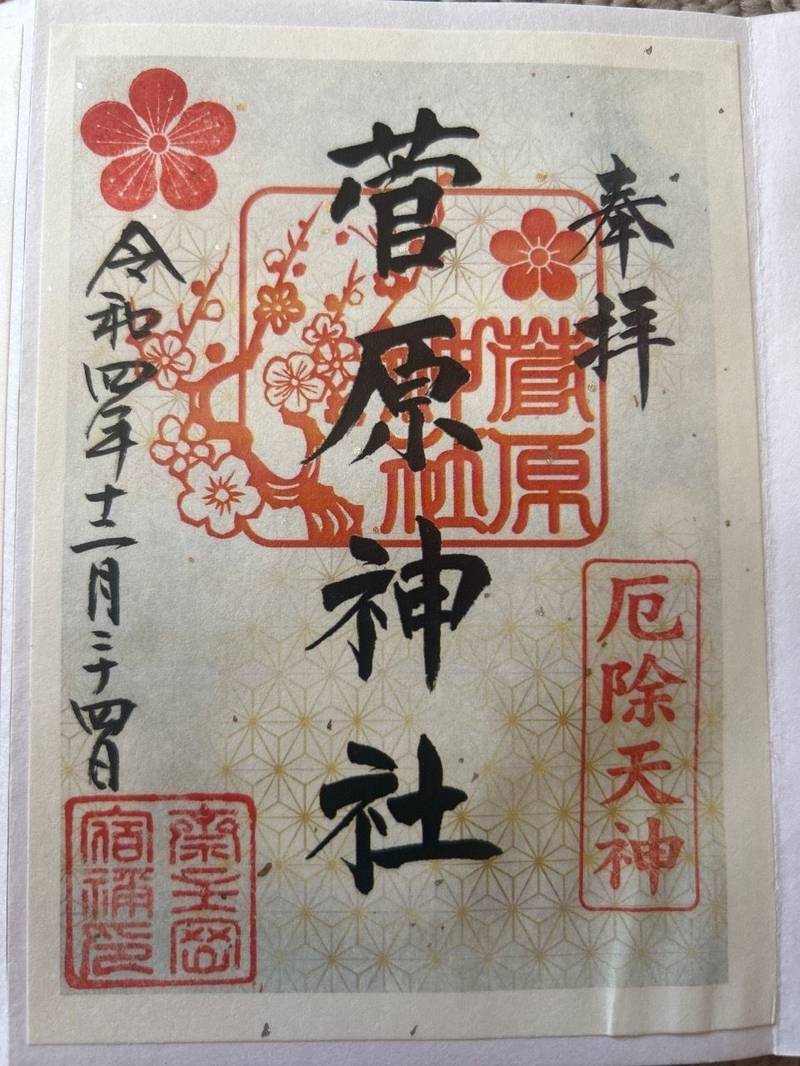 奉拝
厄除天神
菅原神社
菅原
神社
令和四年十二月二十四日